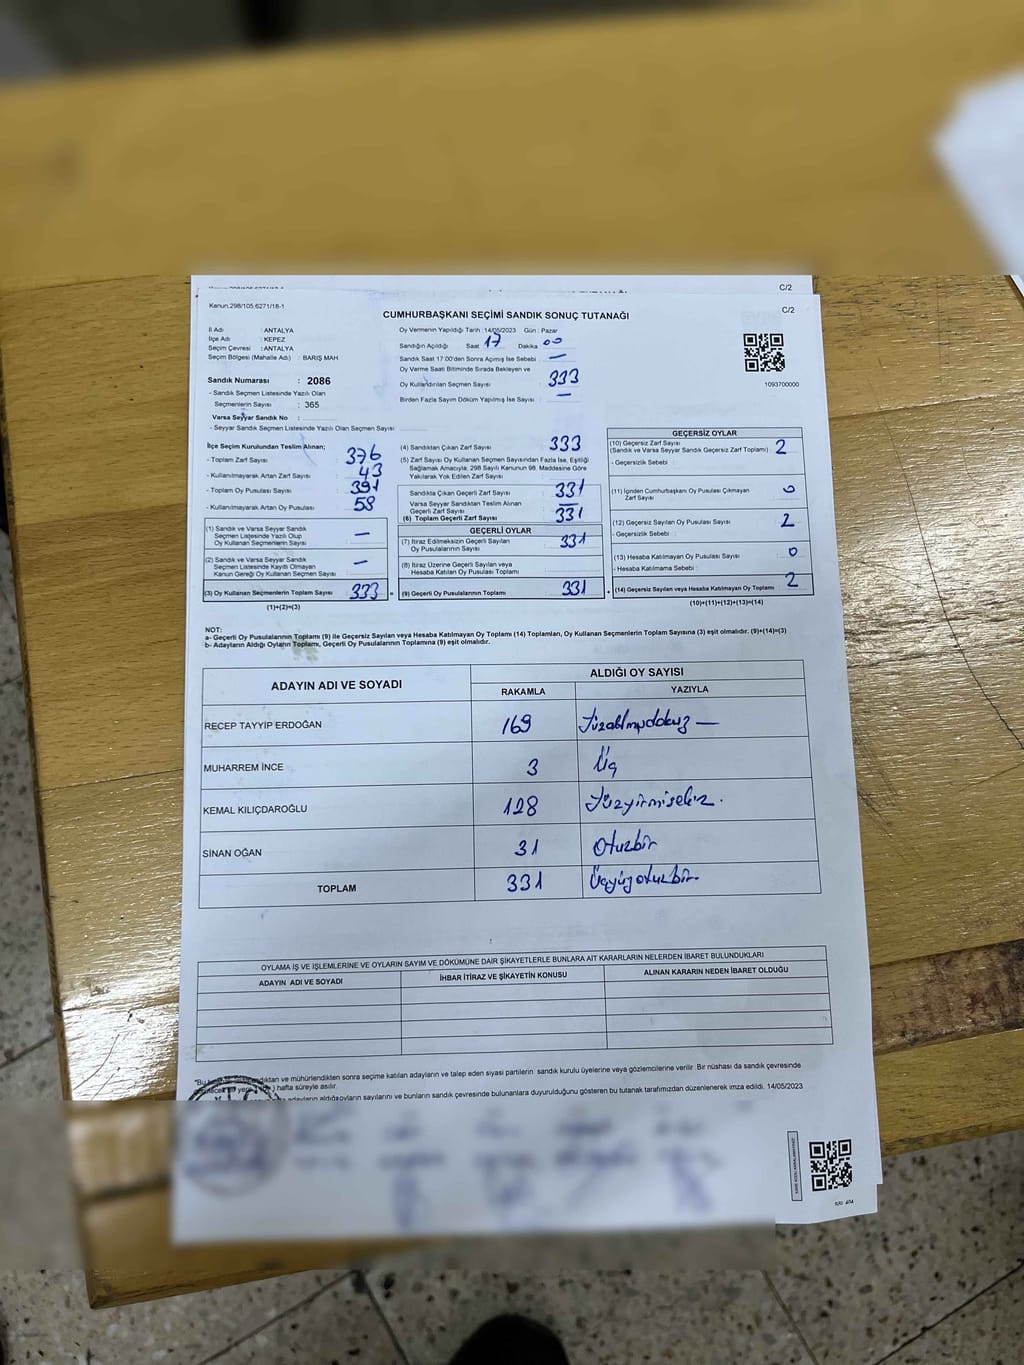 C/2
Kanun.298/105,6271/18-1
C/2
CUMHURBAŞKANI SEÇİMİ SANDIK SONUÇ TUTANAĞI
İl Adı : ANTALYA
İlçe Adı : KEPEZ
Seçim Çevresi : ANTALYA
Seçim Bölgesi (Mahalle Adı) : BARIŞ MAH
Sandık Numarası : 2086
- Sandık Seçmen Listesinde Yazılı Olan
Seçmenlerin Sayısı : 365
Varsa Seyyar Sandık No :
- Seyyar Sandık Seçmen Listesinde Yazılı Olan Seçmen Sayısı
Oy Vermenin Yapıldığı Tarih :14/05/2023 Gün : Pazar
Sandığın Açıldığı Saat 17 Dakika 00
Sandık Saat 17:00'den Sonra Açılmış İse Sebebi : —
Oy Verme Saati Bitiminde Sırada Bekleyen ve
Oy Kullandırılan Seçmen Sayısı : 333
Birden Fazla Sayım Döküm Yapılmış İse Sayısı : —
1093700000
İlçe Seçim Kurulundan Teslim Alınan;
- Toplam Zarf Sayısı : 376
- Kullanılmayarak Artan Zarf Sayısı : 43
- Toplam Oy Pusulası Sayısı : 391
- Kullanılmayarak Artan Oy Pusulası : 58
(1) Sandık ve Varsa Seyyar Sandık
Seçmen Listesinde Yazılı Olup
Oy Kullanan Seçmenlerin Sayısı : —
(2) Sandık ve Varsa Seyyar Sandık
Seçmen Listesinde Kayıtlı Olmayan
Kanun Gereği Oy Kullanan Seçmen Sayısı : —
(3) Oy Kullanan Seçmenlerin Toplam Sayısı : 333
(1)+(2)=(3)
(4) Sandıktan Çıkan Zarf Sayısı : 333
(5) Zarf Sayısı Oy Kullanan Seçmen Sayısından Fazla İse, Eşitliği
Sağlamak Amacıyla, 298 Sayılı Kanunun 98. Maddesine Göre
Yakılarak Yok Edilen Zarf Sayısı :
Sandıkta Çıkan Geçerli Zarf Sayısı : 331
Varsa Seyyar Sandıktan Teslim Alınan
Geçerli Zarf Sayısı : —
(6) Toplam Geçerli Zarf Sayısı : 331
GEÇERLİ OYLAR
(7) İtiraz Edilmeksizin Geçerli Sayılan
Oy Pusulalarının Sayısı : 331
(8) İtiraz Üzerine Geçerli Sayılan veya
Hesaba Katılan Oy Pusulası Toplamı :
= (9) Geçerli Oy Pusulalarının Toplamı : 331
GEÇERSİZ OYLAR
(10) Geçersiz Zarf Sayısı
(Sandık ve Varsa Seyyar Sandık Geçersiz Zarf Toplamı) : 2
- Geçersizlik Sebebi :
(11) İçinden Cumhurbaşkanı Oy Pusulası Çıkmayan
Zarf Sayısı : 0
(12) Geçersiz Sayılan Oy Pusulası Sayısı : 2
- Geçersizlik Sebebi :
(13) Hesaba Katılmayan Oy Pusulası Sayısı : 0
- Hesaba Katılmama Sebebi :
+ (14) Geçersiz Sayılan veya Hesaba Katılmayan Oy Toplamı : 2
(10)+(11)+(12)+(13)=(14)
NOT:
a- Geçerli Oy Pusulalarının Toplamı (9) ile Geçersiz Sayılan veya Hesaba Katılmayan Oy Toplamı (14) Toplamları, Oy Kullanan Seçmenlerin Toplam Sayısına (3) eşit olmalıdır. (9)+(14)=(3)
b- Adayların Aldığı Oyların Toplamı, Geçerli Oy Pusulalarının Toplamına (9) eşit olmalıdır.
ADAYIN ADI VE SOYADI
ALDIĞI OY SAYISI
RAKAMLA YAZIYLA
RECEP TAYYİP ERDOĞAN 169 Yüzaltmışdokuz —
MUHARREM İNCE 3 Üç
KEMAL KILIÇDAROĞLU 128 Yüzyirmisekiz.
SİNAN OĞAN 31 Otuzbir
TOPLAM 331 Üçyüzotuzbir
OYLAMA İŞ VE İŞLEMLERİNE VE OYLARIN SAYIM VE DÖKÜMÜNE DAİR ŞİKAYETLERLE BUNLARA AİT KARARLARIN NELERDEN İBARET BULUNDUKLARI
ADAYIN ADI VE SOYADI İHBAR İTİRAZ VE ŞİKAYETİN KONUSU ALINAN KARARIN NEDEN İBARET OLDUĞU
ve mühürlendikten sonra seçime katılan adayların ve talep eden siyasi partilerin sandık kurulu üyelerine veya gözlemcilerine verilir. Bir nüshası da sandık çevresinde
hafta süreyle asılır.
adayların aldığı oyların sayılarını ve bunların sandık çevresinde bulunanlara duyurulduğunu gösteren bu tutanak tarafımızdan düzenlenerek imza edildi. 14/05/2023